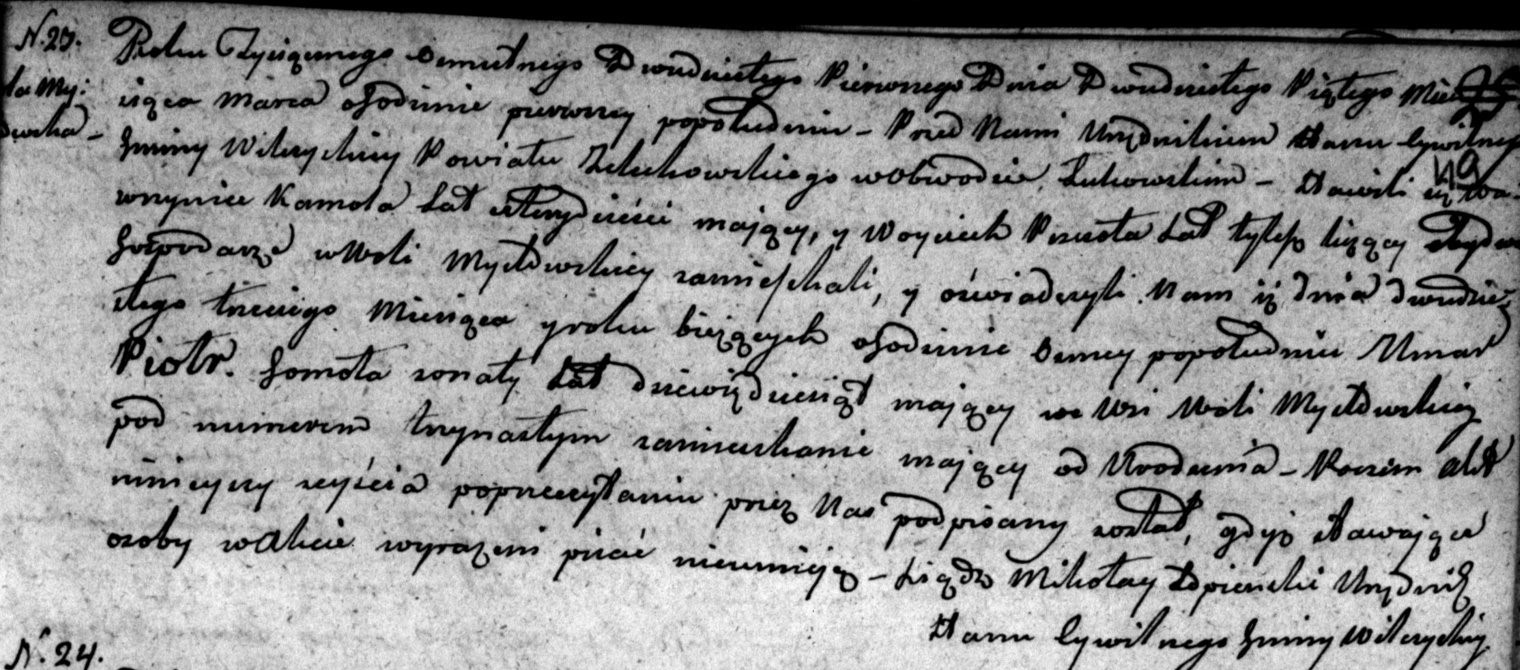 N. 23.
la My:
Roku Tysiącznego Osmsetnego Dwudziestego Pierwszego Dnia Dwudziestego Piątego Mie
siąca Marca o Godzinie pierwszey popołudniu – Przed Nami Urzędnikiem Stanu Cywilnego
49
Gminy Wilczyskiey Powiatu Żelechowskiego w Obwodzie Łukowskim – Stawili się Wa-
wrzyniec Kamola Lat czterydzieści maiący, y Woyciech Lat tyleż liczący
Gospodarze w Woli Mysłowskiey zamieszkali, y oświadczyli Nam iż dnia dwudzie
stego trzeciego Miesiąca y roku bieżących o Godzinie osmey popołudniu Umar
Piotr. Gomoła zonaty Lat dziewiędziesiąt maiący we Wsi Woli Mysłowskiey
pod numerem trzynastym zamieszkanie maiący od Urodzenia – Poczem Akt
ninieyszy zeyścia poprzeczytaniu przez Nas podpisany został, gdyż stawaiące
osoby w Akcie wyrazeni pisać nieumieią – Xiądz Mikołay Urzędnik
Stanu Cywilnego Gminy Wilczyskiey
N. 24.